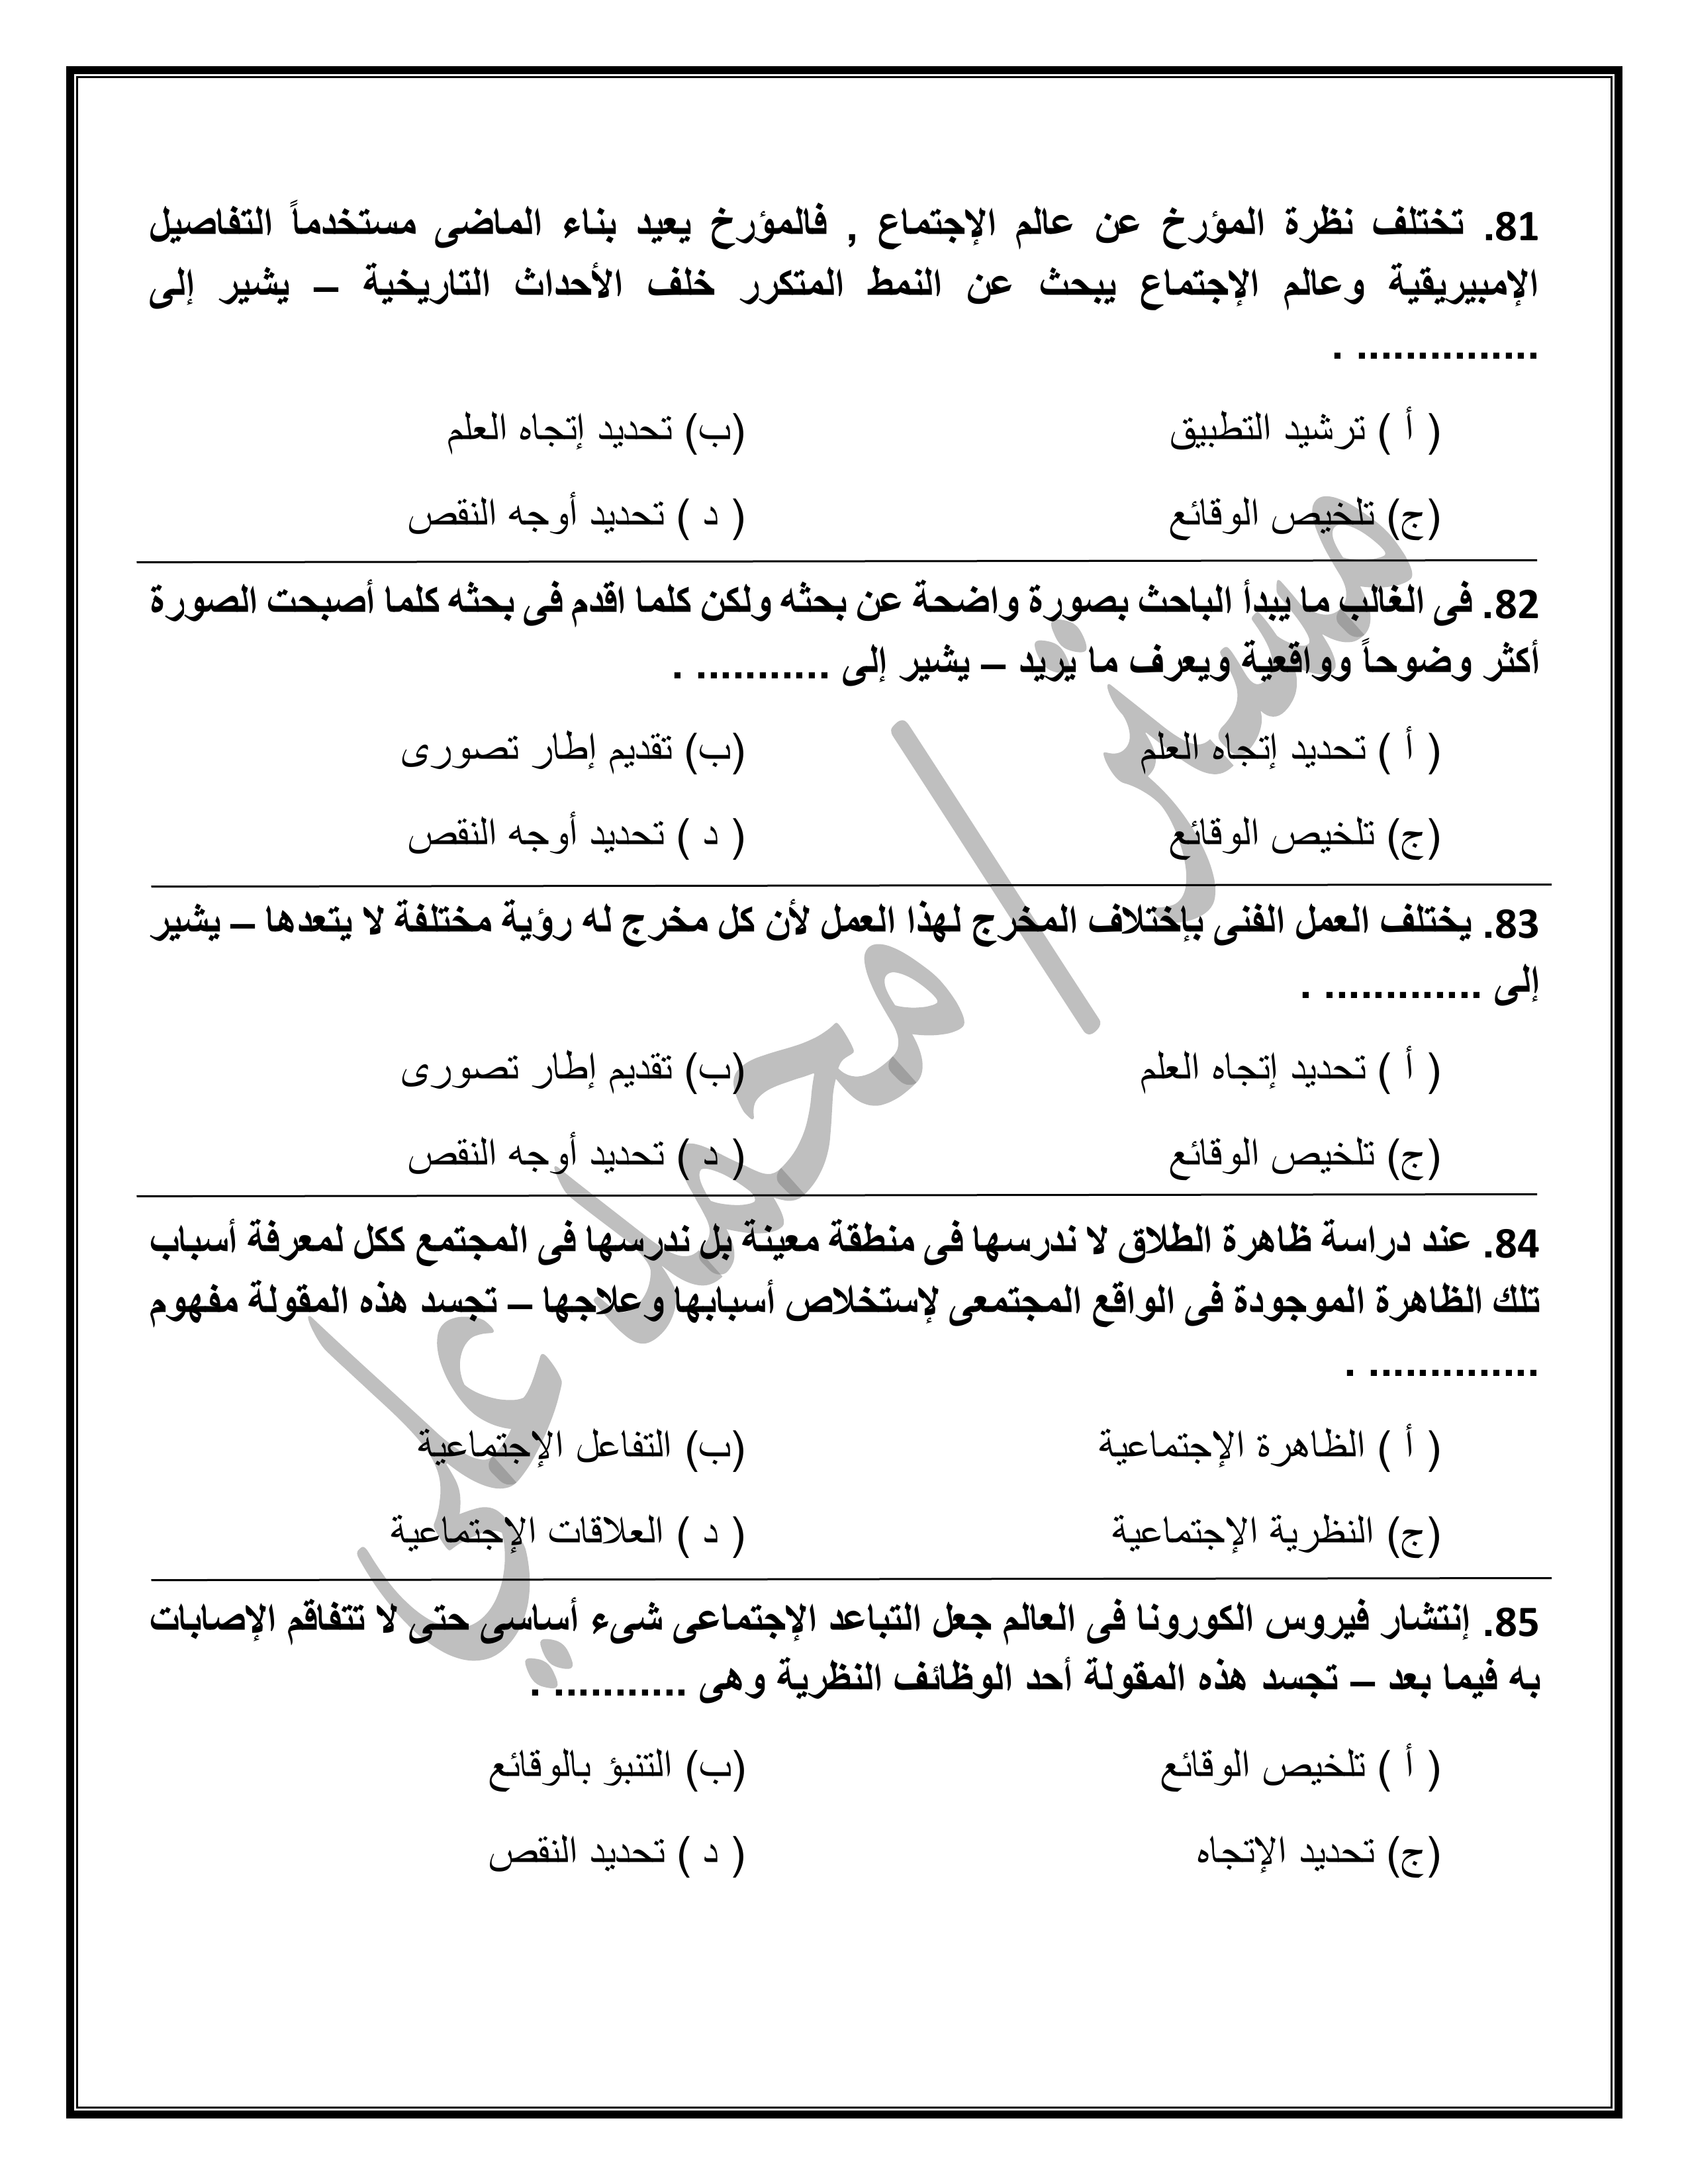 81. تختلف نظرة المؤرخ عن عالم الإجتماع , فالمؤرخ يعيد بناء الماضى مستخدماً التفاصيل
الإمبيريقية وعالم الإجتماع يبحث عن النمط المتكرر خلف الأحداث التاريخية – يشير إلى
............... .
( أ ) ترشيد التطبيق (ب) تحديد إتجاه العلم
(ج) تلخيص الوقائع ( د ) تحديد أوجه النقص
82. فى الغالب ما يبدأ الباحث بصورة واضحة عن بحثه ولكن كلما اقدم فى بحثه كلما أصبحت الصورة
أكثر وضوحاً وواقعية ويعرف ما يريد – يشير إلى ........... .
( أ ) تحديد إتجاه العلم (ب) تقديم إطار تصورى
(ج) تلخيص الوقائع ( د ) تحديد أوجه النقص
83. يختلف العمل الفنى بإختلاف المخرج لهذا العمل لأن كل مخرج له رؤية مختلفة لا يتعدها – يشير
إلى ............. .
( أ ) تحديد إتجاه العلم (ب) تقديم إطار تصورى
(ج) تلخيص الوقائع ( د ) تحديد أوجه النقص
84. عند دراسة ظاهرة الطلاق لا ندرسها فى منطقة معينة بل ندرسها فى المجتمع ككل لمعرفة أسباب
تلك الظاهرة الموجودة فى الواقع المجتمعى لإستخلاص أسبابها وعلاجها – تجسد هذه المقولة مفهوم
.............. .
( أ ) الظاهرة الإجتماعية (ب) التفاعل الإجتماعية
(ج) النظرية الإجتماعية ( د ) العلاقات الإجتماعية
85. إنتشار فيروس الكورونا فى العالم جعل التباعد الإجتماعى شىء أساسى حتى لا تتفاقم الإصابات
به فيما بعد – تجسد هذه المقولة أحد الوظائف النظرية وهى ........... .
( أ ) تلخيص الوقائع (ب) التنبؤ بالوقائع
(ج) تحديد الإتجاه ( د ) تحديد النقص
مستر/ محمد علي